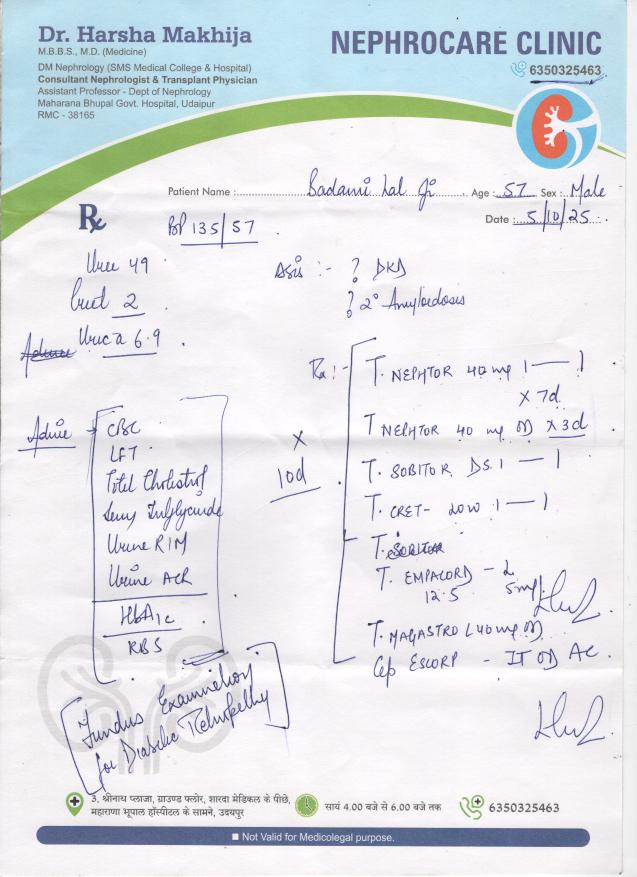 Dr. Harsha Makhija
M.B.B.S., M.D. (Medicine)
DM Nephrology (SMS Medical College & Hospital)
Consultant Nephrologist & Transplant Physician
Assistant Professor - Dept of Nephrology
Maharana Bhupal Govt. Hospital, Udaipur
RMC - 38165
NEPHROCARE CLINIC
6350325463
Patient Name : Badami Lal Ji Age : 57 Sex : Male
Date : 5/10/25
Rx
BP 135/57
Urea 49
Creat 2
Uric a 6.9
:- ? DKD
? 2° Amyloidosis
Advice
CBC
LFT
Total Cholesterol
Serum Triglyceride
Urine R/M
Urine ACR
HbA1c
RBS
x
10d
Rx :-
T. NEPHTOR 40 mg 1 — 1
x 7d
T NEPHTOR 40 mg OD x 3d
T. SOBITOR DS 1 — 1
T. CRET- 1 — 1
T.
T. EMPACORD -
12.5
T. MAGASTRO L 40 mg OD
Cap ESCORP - OD AC
Fundus Examination
for Diabetic Retinopathy
3, श्रीनाथ प्लाजा, ग्राउण्ड फ्लोर, शारदा मेडिकल के पीछे,
महाराणा भूपाल हॉस्पीटल के सामने, उदयपुर
सायं 4.00 बजे से 6.00 बजे तक
6350325463
Not Valid for Medicolegal purpose.